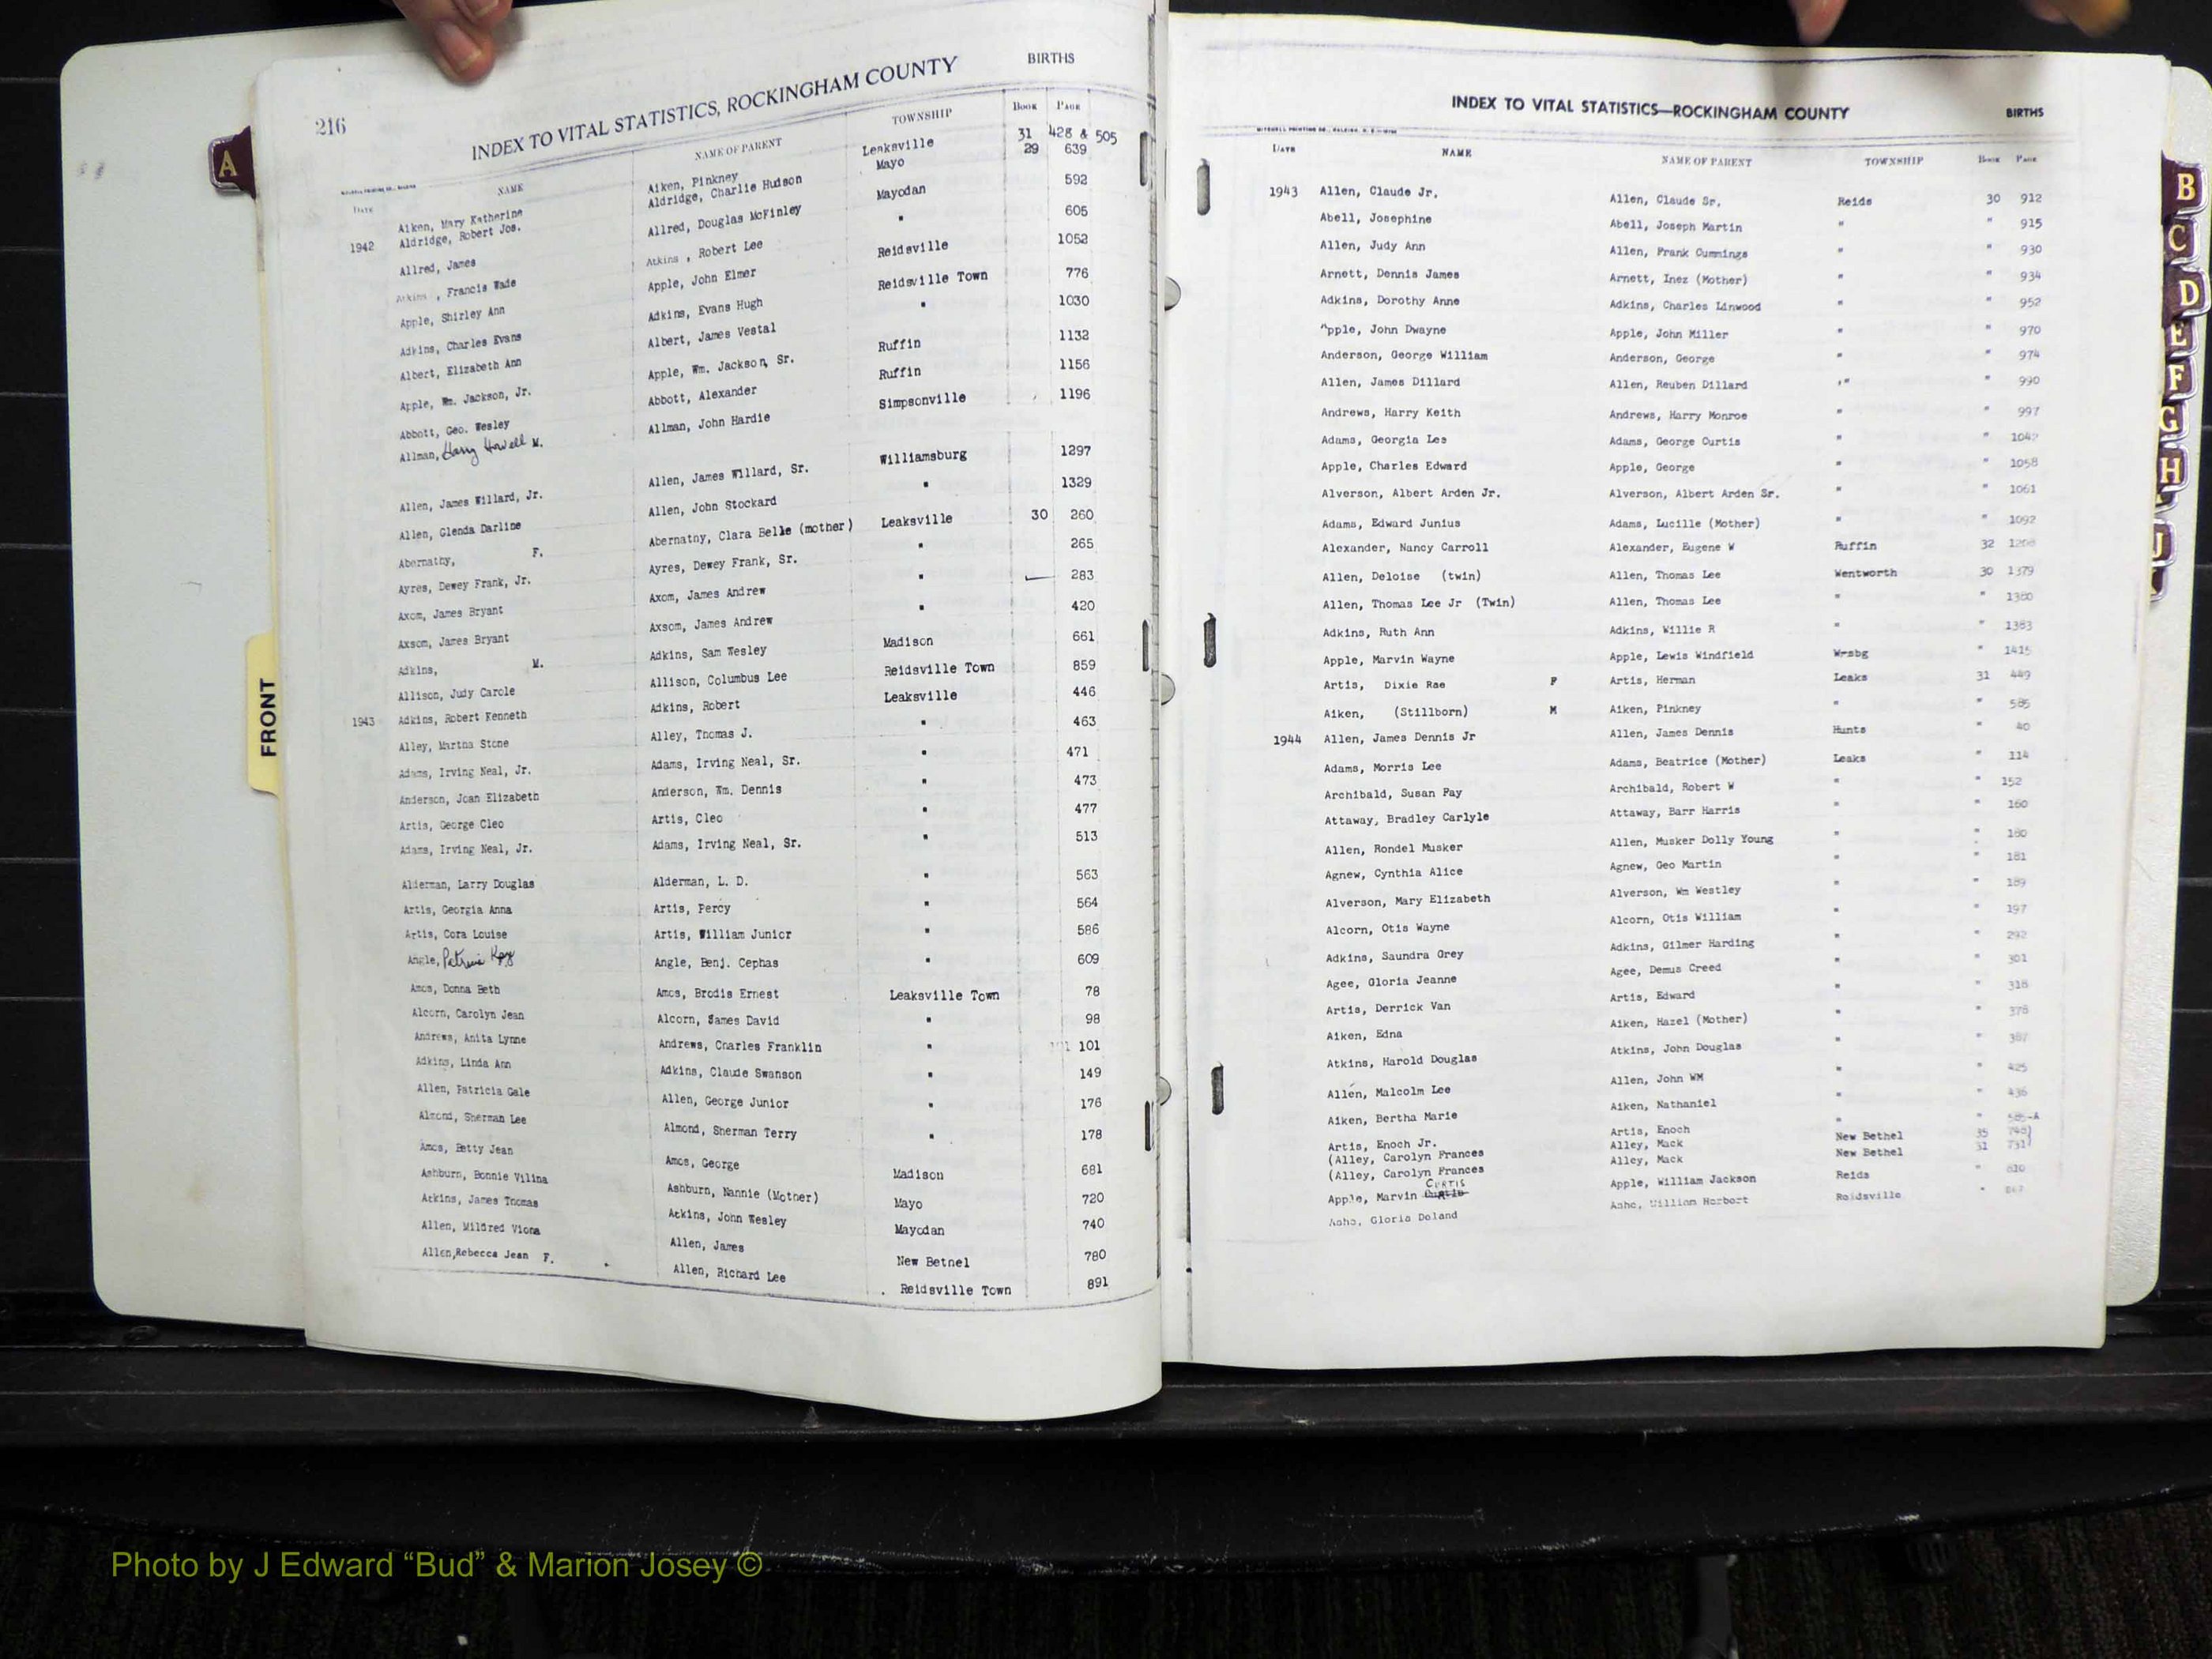 216
INDEX TO VITAL STATISTICS, ROCKINGHAM COUNTY BIRTHS
DATE NAME NAME OF PARENT TOWNSHIP BOOK PAGE
Aiken, Mary Katherine Aiken, Pinkney Leaksville 31 428 & 505
1942 Aldridge, Robert Jos. Aldridge, Charlie Hudson Mayo 29 639
Allred, James Allred, Douglas McFinley Mayodan 592
Atkins , Francis Wade Atkins , Robert Lee " 605
Apple, Shirley Ann Apple, John Elmer Reidsville 1052
Adkins, Charles Evans Adkins, Evans Hugh Reidsville Town 776
Albert, Elizabeth Ann Albert, James Vestal " 1030
Apple, Wm. Jackson, Jr. Apple, Wm. Jackson, Sr. Ruffin 1132
Abbott, Geo. Wesley Abbott, Alexander Ruffin 1156
Allman, Harry Howell M. Allman, John Hardie Simpsonville 1196
Allen, James Willard, Jr. Allen, James Willard, Sr. Williamsburg 1297
Allen, Glenda Darline Allen, John Stockard " 1329
Abernathy, F. Abernatny, Clara Belle (mother) Leaksville 30 260
Ayres, Dewey Frank, Jr. Ayres, Dewey Frank, Sr. " 265
Axom, James Bryant Axom, James Andrew " 283
Axsom, James Bryant Axsom, James Andrew " 420
Adkins, M. Adkins, Sam Wesley Madison 661
Allison, Judy Carole Allison, Columbus Lee Reidsville Town 859
1943 Adkins, Robert Kenneth Adkins, Robert Leaksville 446
Alley, Martha Stone Alley, Thomas J. " 463
Adams, Irving Neal, Jr. Adams, Irving Neal, Sr. " 471
Anderson, Joan Elizabeth Anderson, Wm. Dennis " 473
Artis, George Cleo Artis, Cleo " 477
Adams, Irving Neal, Jr. Adams, Irving Neal, Sr. " 513
Alderman, Larry Douglas Alderman, L. D. " 563
Artis, Georgia Anna Artis, Percy " 564
Artis, Cora Louise Artis, William Junior " 586
Angle, Patricia Kay Angle, Benj. Cephas " 609
Amos, Donna Beth Amos, Brodis Ernest Leaksville Town 78
Alcorn, Carolyn Jean Alcorn, James David " 98
Andrews, Anita Lynne Andrews, Charles Franklin " 101
Adkins, Linda Ann Adkins, Claude Swanson " 149
Allen, Patricia Gale Allen, George Junior " 176
Almond, Sherman Lee Almond, Sherman Terry " 178
Amos, Betty Jean Amos, George Madison 681
Ashburn, Bonnie Vilina Ashburn, Nannie (Mother) Mayo 720
Atkins, James Thomas Atkins, John Wesley Mayodan 740
Allen, Mildred Viona Allen, James New Betnel 780
Allen,Rebecca Jean F. Allen, Richard Lee Reidsville Town 891
INDEX TO VITAL STATISTICS—ROCKINGHAM COUNTY BIRTHS
DATE NAME NAME OF PARENT TOWNSHIP BOOK PAGE
1943 Allen, Claude Jr. Allen, Claude Sr. Reids 30 912
Abell, Josephine Abell, Joseph Martin " " 915
Allen, Judy Ann Allen, Frank Cummings " " 930
Arnett, Dennis James Arnett, Inez (Mother) " " 934
Adkins, Dorothy Anne Adkins, Charles Linwood " " 952
Apple, John Dwayne Apple, John Miller " " 970
Anderson, George William Anderson, George " " 974
Allen, James Dillard Allen, Reuben Dillard " " 990
Andrews, Harry Keith Andrews, Harry Monroe " " 997
Adams, Georgia Lee Adams, George Curtis " " 1042
Apple, Charles Edward Apple, George " " 1058
Alverson, Albert Arden Jr. Alverson, Albert Arden Sr. " " 1061
Adams, Edward Junius Adams, Lucille (Mother) " " 1092
Alexander, Nancy Carroll Alexander, Eugene W Ruffin 32 1208
Allen, Deloise (twin) Allen, Thomas Lee Wentworth 30 1379
Allen, Thomas Lee Jr (Twin) Allen, Thomas Lee " " 1380
Adkins, Ruth Ann Adkins, Willie R " " 1383
Apple, Marvin Wayne Apple, Lewis Windfield Wmsbg " 1415
Artis, Dixie Rae F Artis, Herman Leaks 31 449
Aiken, (Stillborn) M Aiken, Pinkney " " 585
1944 Allen, James Dennis Jr Allen, James Dennis Hunts " 40
Adams, Morris Lee Adams, Beatrice (Mother) Leaks " 114
Archibald, Susan Fay Archibald, Robert W " " 152
Attaway, Bradley Carlyle Attaway, Barr Harris " " 160
Allen, Rondel Musker Allen, Musker Dolly Young " " 180
Agnew, Cynthia Alice Agnew, Geo Martin " " 181
Alverson, Mary Elizabeth Alverson, Wm Westley " " 189
Alcorn, Otis Wayne Alcorn, Otis William " " 197
Adkins, Saundra Grey Adkins, Gilmer Harding " " 292
Agee, Gloria Jeanne Agee, Demus Creed " " 301
Artis, Derrick Van Artis, Edward " " 318
Aiken, Edna Aiken, Hazel (Mother) " " 378
Atkins, Harold Douglas Atkins, John Douglas " " 387
Allen, Malcolm Lee Allen, John WM " " 425
Aiken, Bertha Marie Aiken, Nathaniel " " 436
Artis, Enoch Jr. Artis, Enoch " " 585-A
(Alley, Carolyn Frances Alley, Mack New Bethel 35 748)
(Alley, Carolyn Frances Alley, Mack New Bethel 31 731)
Apple, Marvin CURTIS Apple, William Jackson Reids " 810
Ashe, Gloria Doland Ashe, William Herbert Reidsville "
A
FRONT
B
C
D
E
F
G
H
J
Photo by J Edward “Bud” & Marion Josey ©